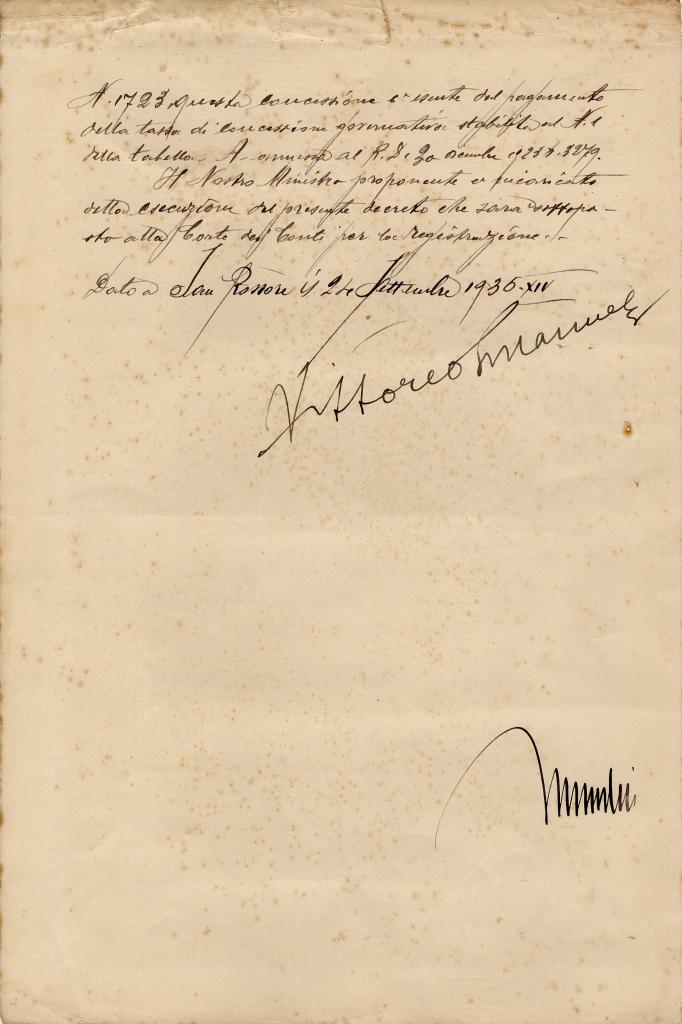 N. 1723, questa concessione è esente dal pagamento
della tassa di concessione governativa stabilita al N. 1
della tabella - A - annessa al R. D. 30 dicembre 1923 n. 3279.
Il Nostro Ministro proponente è incaricato
della esecuzione del presente decreto che sarà sottopo-
sto alla Corte dei Conti per la registrazione.-
Dato a San Rossore il 24 Settembre 1936-XIV
Vittorio Emanuele